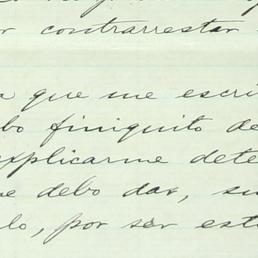 r contrarrestar
a que me escri
bo finiquito de
explicarme dete
e debo dar, su
lo, por ser est